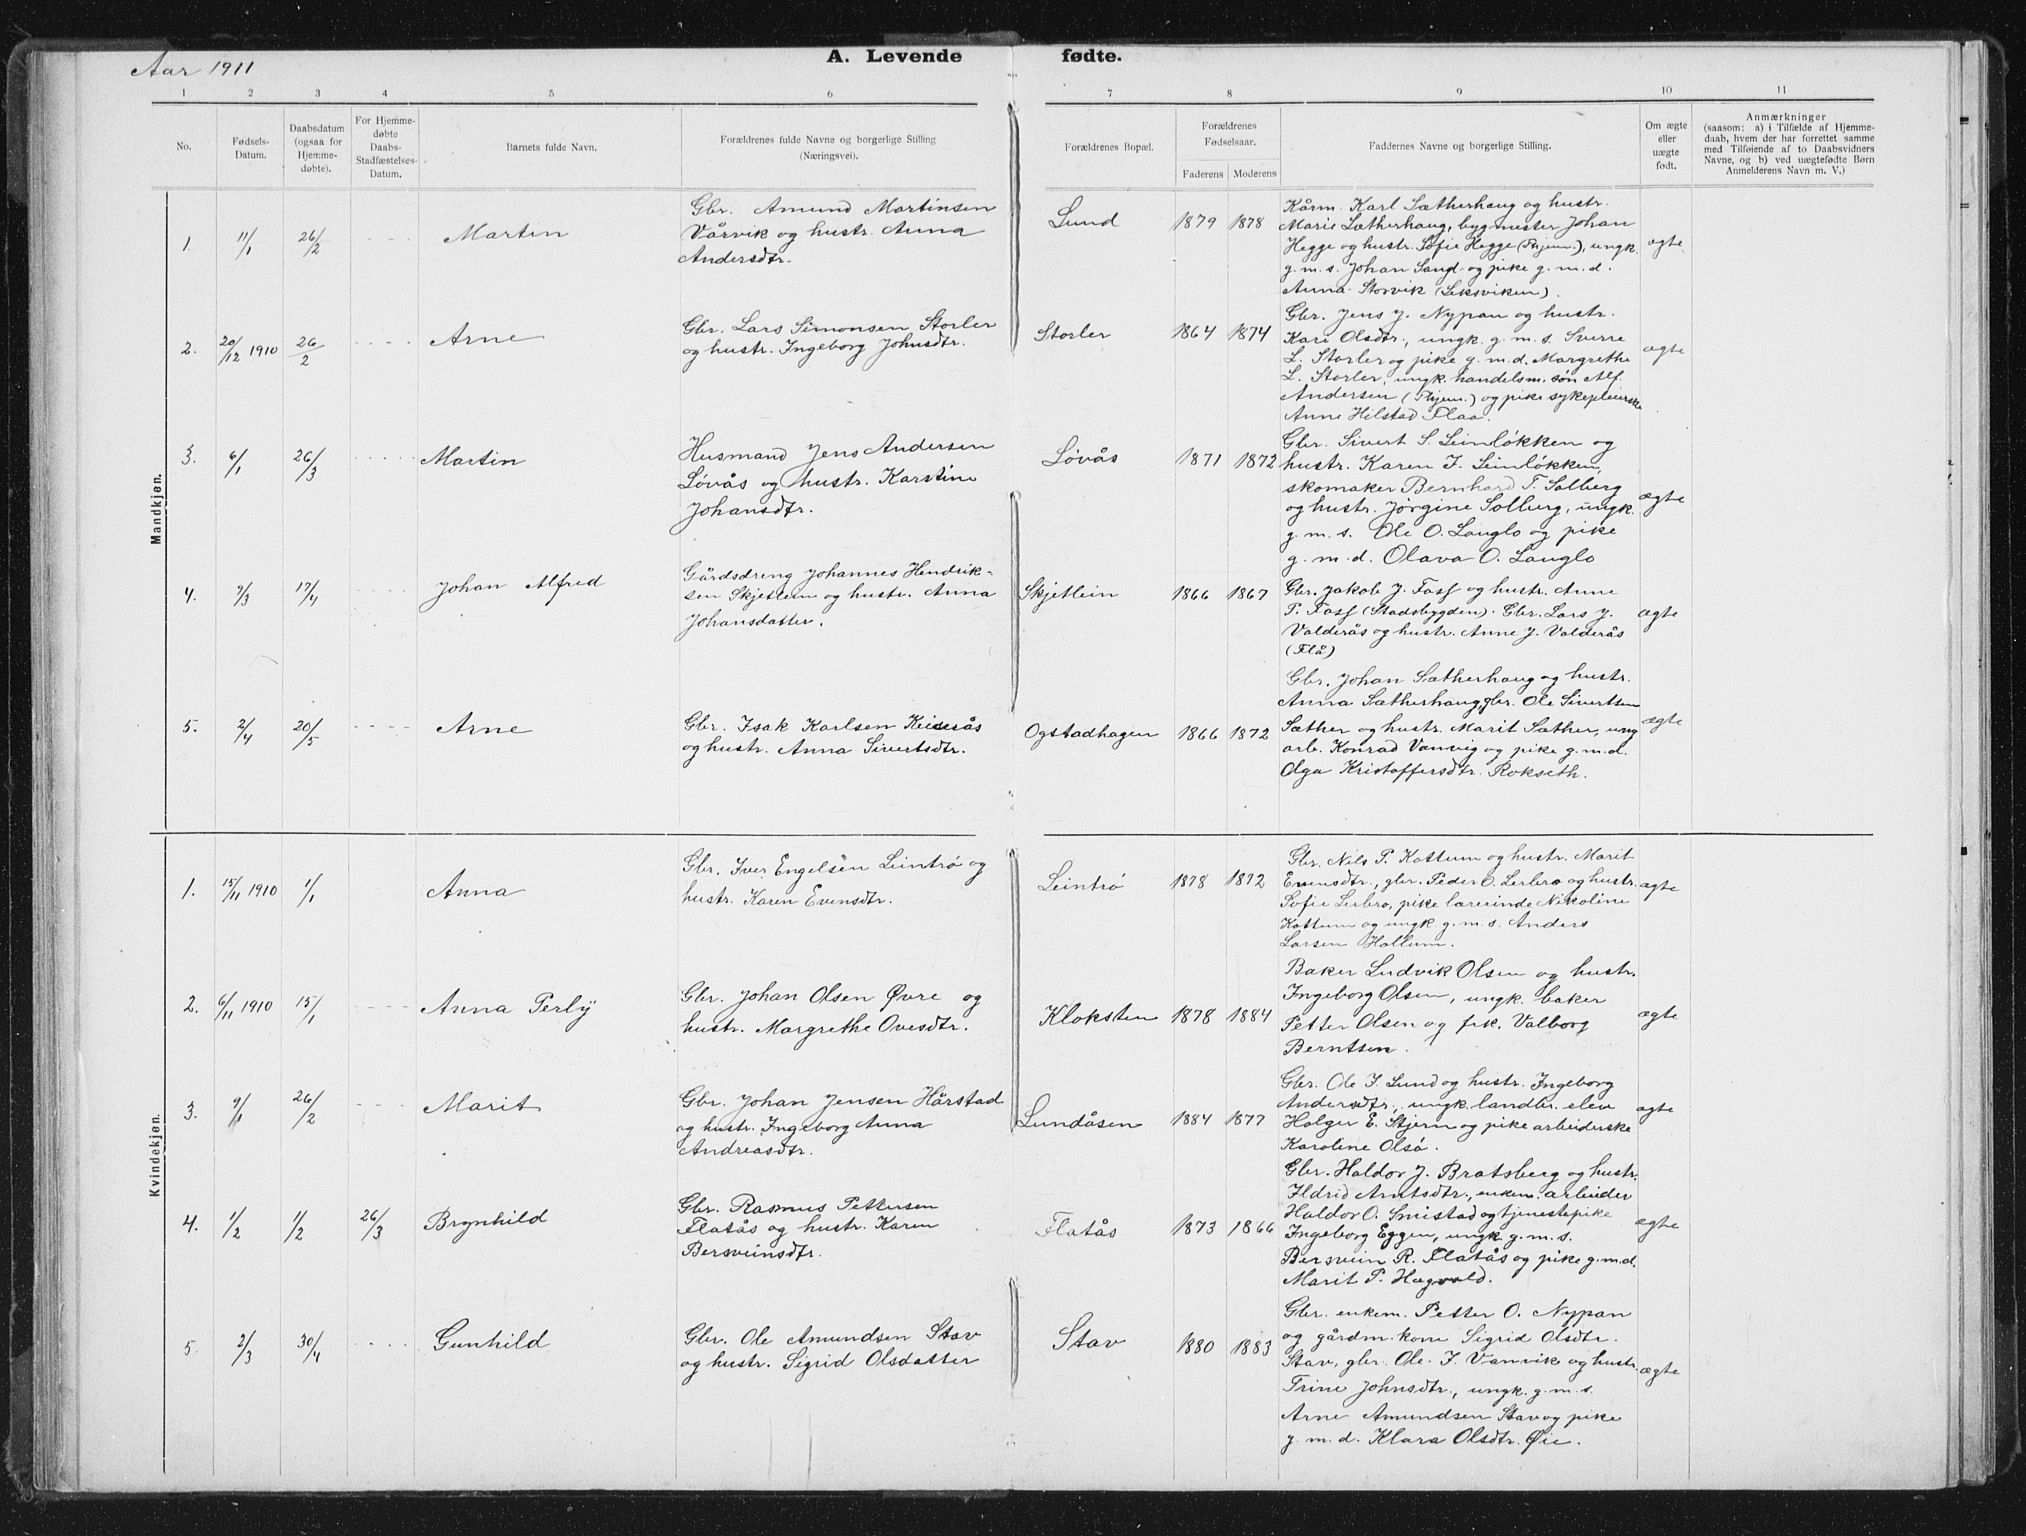 Aar 1911
A. Levende fødte.
1 2 3 4 5 6 7 8 9 10 11
No.
Fødsels-
Datum.
Daabsdatum
(ogsaa for
Hjemme-
døbte).
For Hjemme-
døbte
Daabs-
Stadfæstelses-
Datum.
Barnets fulde Navn.
Forældrenes fulde Navne og borgerlige Stilling
(Næringsvei).
Forældrenes Bopæl.
Forældrenes
Fødselsaar.
Faderens Moderens
Faddernes Navne og borgerlige Stilling.
Om ægte
eller
uægte
født.
Anmærkninger
(saasom: a) i Tilfælde af Hjemme-
daab, hvem der har forrettet samme
med Tilføiende af to Daabsvidners
Navne, og b) ved uægtefødte Børn
Anmelderens Navn m. V.)
Mandkjøn.
1. 11/1 26/2 Martin
Gbr. Amund Martinsen
Vårvik og hustr. Anna
Andersdtr.
Lund 1879 1878
Kårm. Karl Sætherhaug og hustr.
Marie Sætherhaug, bygmester Johan
Hegge og hustr. Sofie Hegge (Thjem.), ungk.
g. m. s. Johan Sand og pike g. m. d.
Anna Storvik (Leksviken).
ægte
2. 20/12 1910 26/2 Arne
Gbr. Lars Simonsen Storler
og hustr. Ingeborg Johnsdtr.
Storler 1864 1874
Gbr. Jens J. Nypan og hustr.
Kari Olsdtr., ungk. g. m. s. Sverre
L. Storler og pike g. m. d. Margrethe
L. Storler, ungk. handelsm. søn Alf
Andersen (Thjem.) og pike sykepleierske
Anne Hilstad Flaa.
ægte
3. 6/1 26/3 Martin
Husmand Jens Andersen
Løvås og hustr. Karstine
Johansdtr.
Løvås 1871 1872
Gbr. Sivert S. Leinløkken og
hustr. Karen J. Leinløkken,
skomaker Bernhard T. Solberg
og hustr. Jørgine Solberg, ungk.
g. m. s. Ole O. Langlo og pike
g. m. d. Olava O. Langlo
ægte
4. 7/3 17/4 Johan Alfred
Gårdsdreng Johannes Hendrik-
sen Skjetlein og hustr. Anna
Johansdatter.
Skjetlein 1866 1867
Gbr. Jakob J. Fasf og hustr. Anne
P. Fasf (Stadsbygden). Gbr. Lars J.
Valderås og hustr. Anne J. Valderås
(Flå)
ægte
5. 2/4 20/5 Arne
Gbr. Isak Karlsen Keiserås
og hustr. Anna Sivertsdtr.
Ogstadhagen 1866 1872
Gbr. Johan Sætherhaug og hustr.
Anna Sætherhaug, gbr. Ole Sivertsen
Sæther og hustr. Marit Sæther, ung
arb. Konrad Vanvig og pike g. m. d.
Olga Kristoffersdtr. Rokseth.
ægte
Kvindekjøn.
1. 15/11 1910 1/1 Anna
Gbr. Iver Engelsen Leintrø og
hustr. Karen Evensdtr.
Leintrø 1878 1872
Gbr. Nils P. Kottum og hustr. Marit
Evensdtr., gbr. Peder O. Lerbro og hustr.
Sofie Lerbro, pike lærerinde Nikoline
Kottum og ungk g. m. s. Anders
Larsen Hollum.
ægte
2. 6/11 1910 15/1 Anna Perly
Gbr. Johan Olsen Øvre og
hustr. Margrethe Ovesdtr.
Kloksten 1878 1884
Baker Ludvik Olsen og hustr.
Ingeborg Olsen, ungk. baker
Petter Olsen og pik. Valborg
Berntsen.
ægte
3. 9/1 26/2 Marit
Gbr. Johan Jensen Hårstad
og hustr. Ingeborg Anna
Andreasdtr.
Lundåsen 1884 1877
Gbr. Ole J. Lund og hustr. Ingeborg
Andersdtr., ungk. landbr. elev
Holger E. Stjern og pike arbeiderske
Karoline Olsø.
ægte
4. 1/2 1/2 26/3 Brynhild
Gbr. Rasmus Pettersen
Flatås og hustr. Karen
Bersveinsdtr.
Flatås 1873 1866
Gbr. Haldor J. Bratsberg og hustr.
Ildrid Arntsdtr., enkem. arbeider
Haldor O. Smistad og tjenestepike
Ingeborg Eggen, ungk. g. m. s.
Bersvein R. Flatås og pike g. m. d.
Marit P. Hægvold.
ægte
5. 2/3 30/4 Gunhild
Gbr. Ole Amundsen Stav
og hustr. Sigrid Olsdatter
Stav 1880 1883
Gbr. enkem. Petter O. Nypan
og gårdm. kone Sigrid Olsdtr.
Stav, gbr. Ole J. Vanvik og hustr.
Trine Johnsdtr., ungk. g. m. s.
Arne Amundsen Stav og pike
g. m. d. Klara Olsdtr. Øie.
ægte